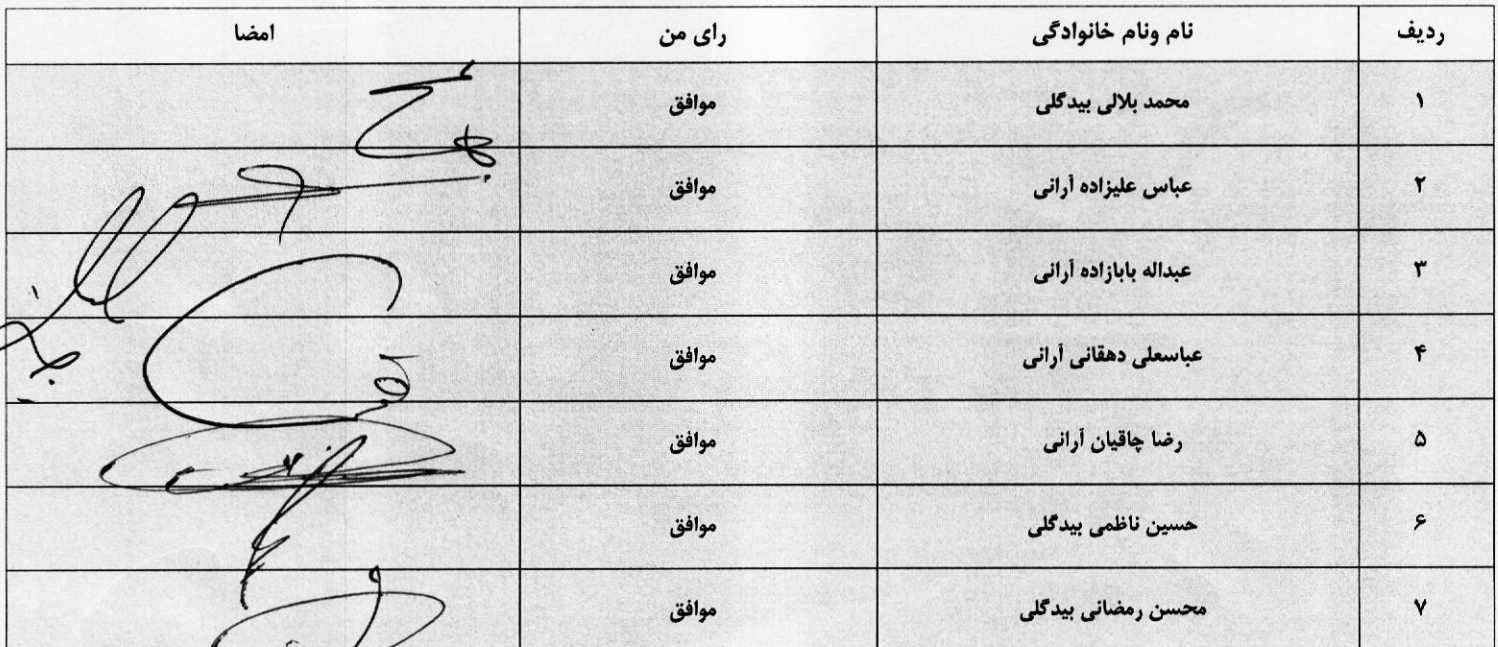 ردیف نام ونام خانوادگی رای من امضا
۱ محمد بلالی بیدگلی موافق
۲ عباس علیزاده آرانی موافق
۳ عبداله بابازاده آرانی موافق
۴ عباسعلی دهقانی آرانی موافق
۵ رضا چاقیان آرانی موافق
۶ حسین ناظمی بیدگلی موافق
۷ محسن رمضانی بیدگلی موافق